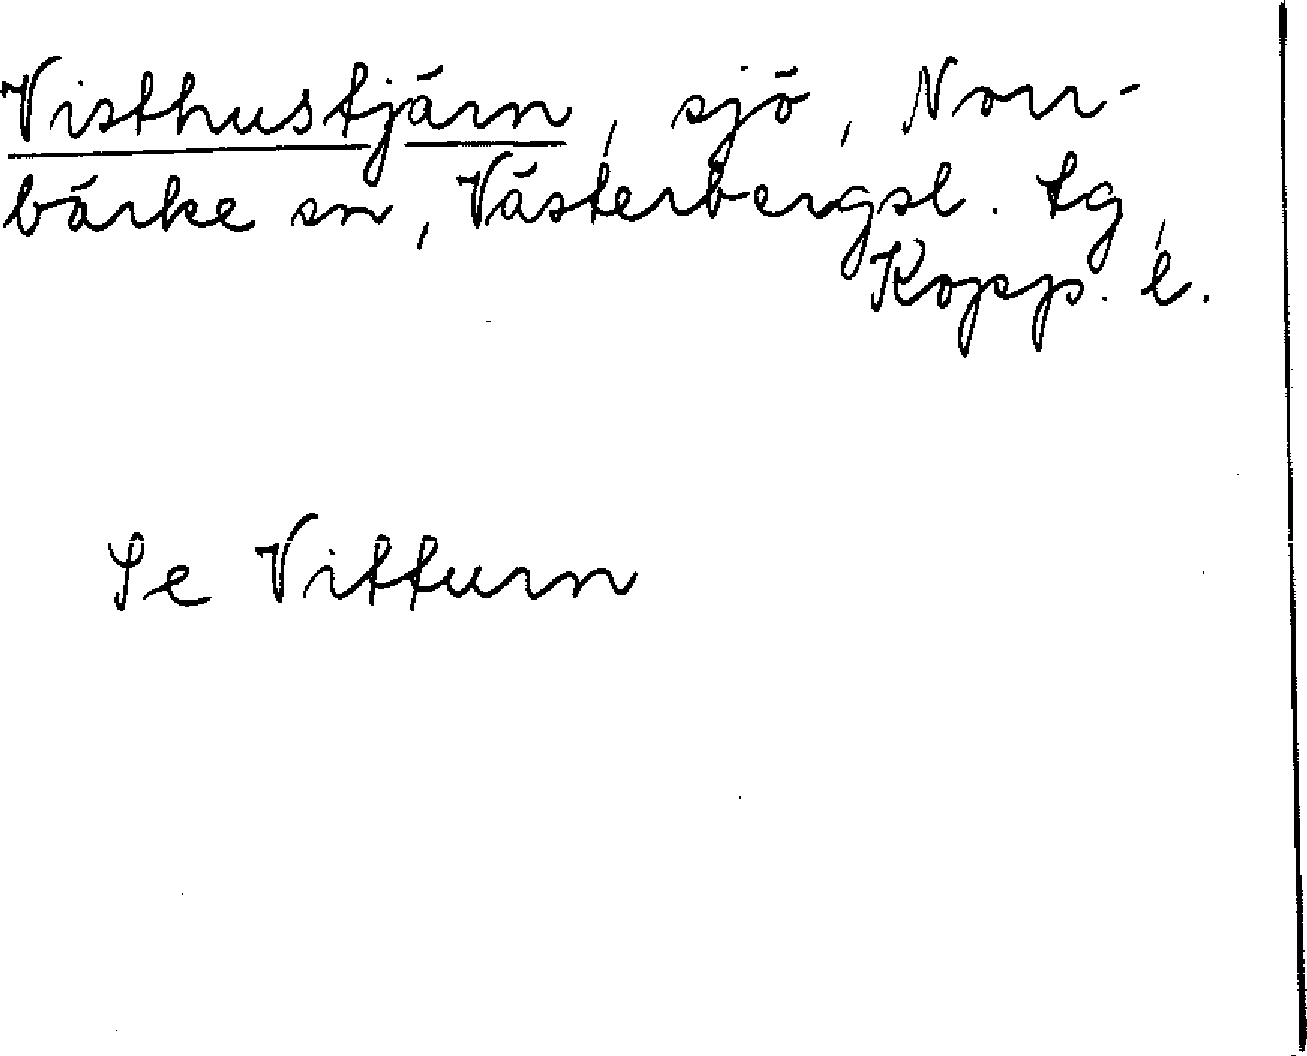 Visthustjärn, sjö, Norr-
bärke sn, Västerbergsl. tg,
Kopp. l.
Se Vitturn